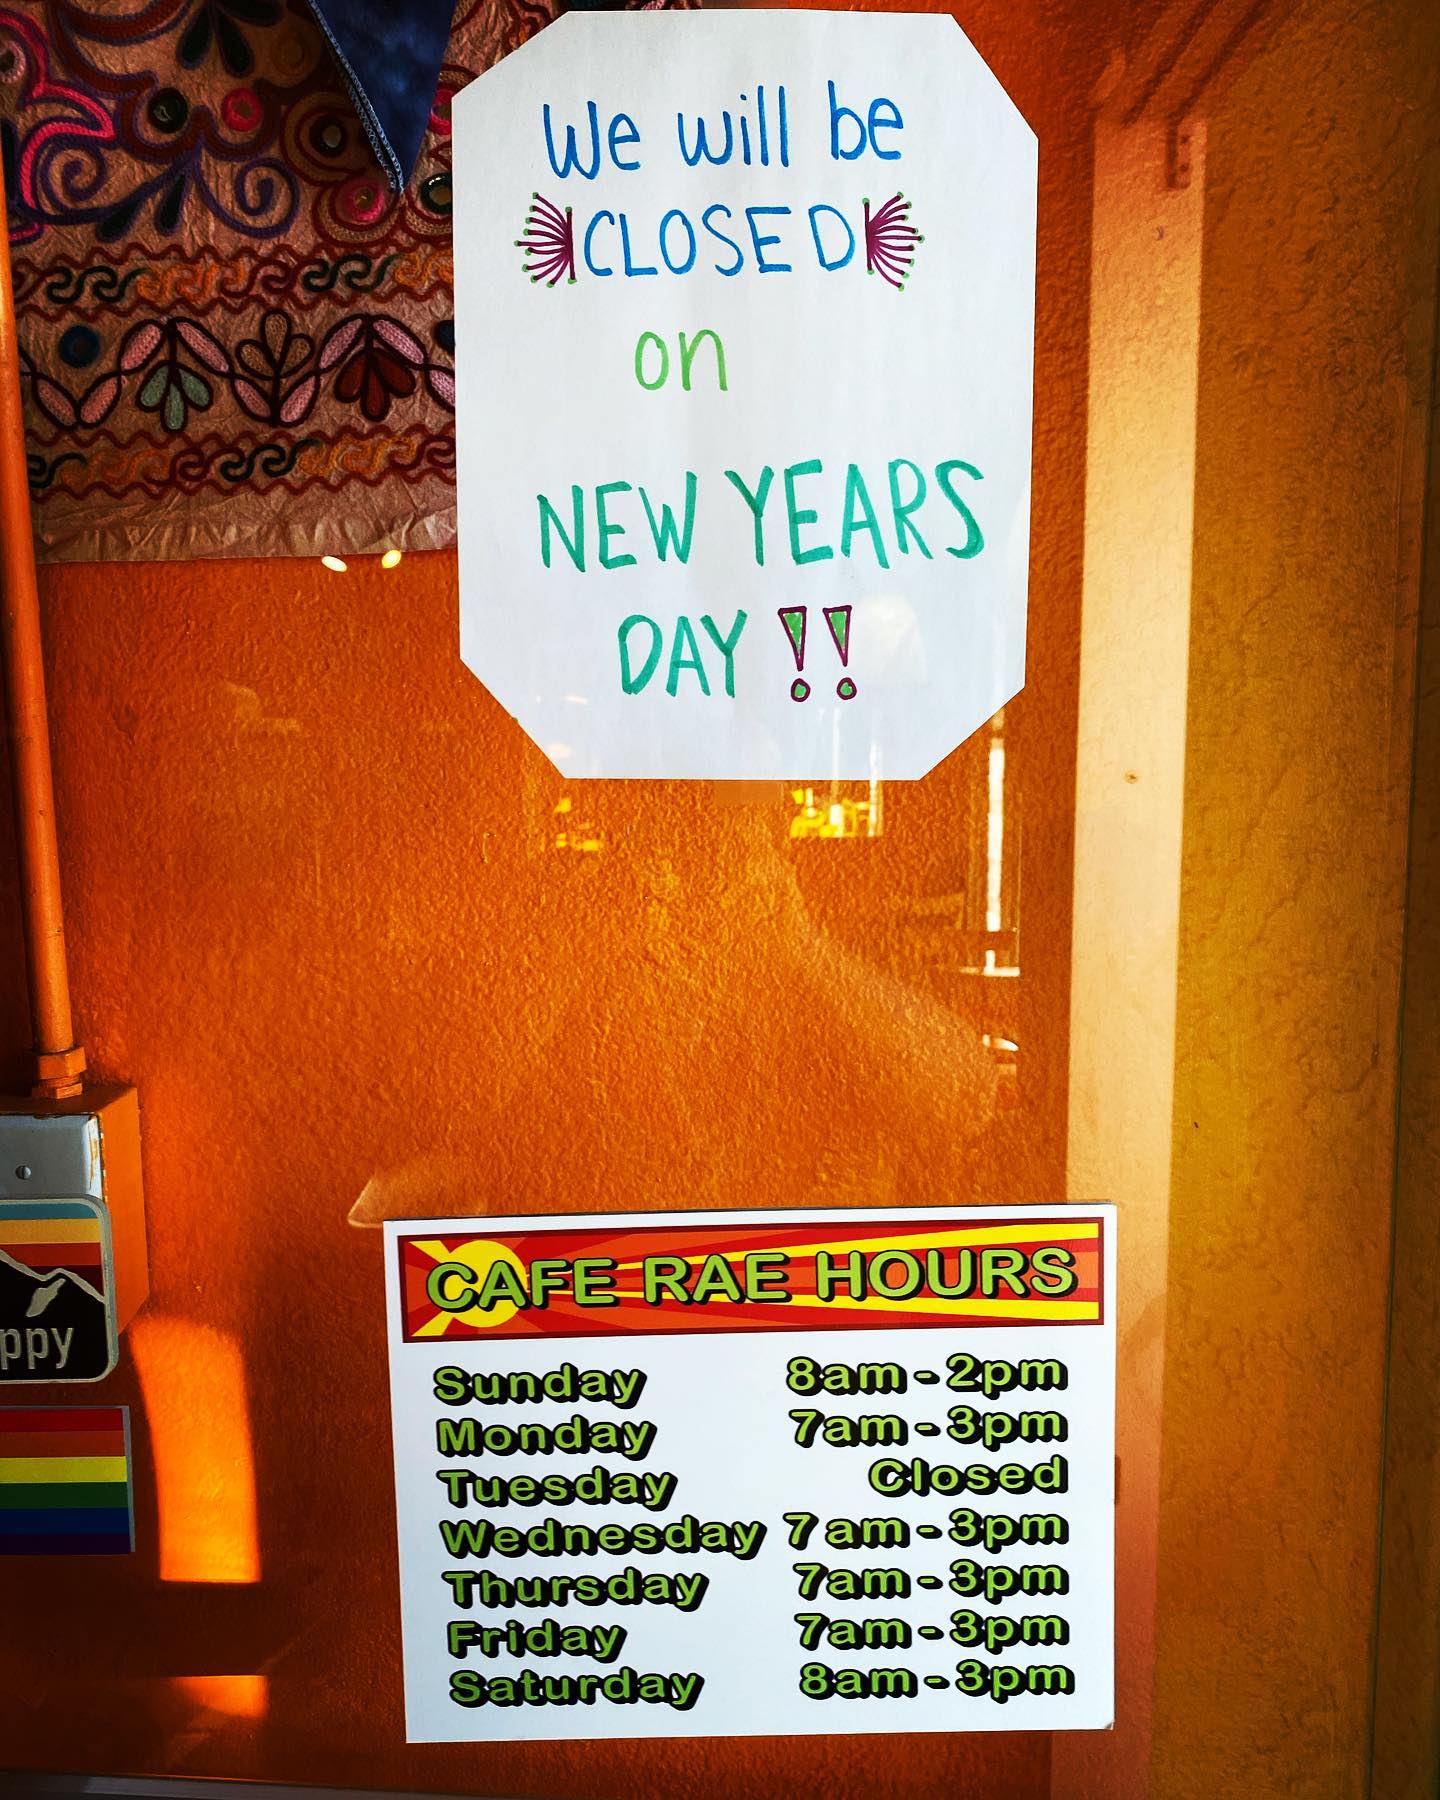 We will be
CLOSED
on
NEW YEARS
DAY !!
ppy
CAFE RAE HOURS
Sunday 8am - 2pm
Monday 7am - 3pm
Tuesday Closed
Wednesday 7am - 3pm
Thursday 7am - 3pm
Friday 7am - 3pm
Saturday 8am - 3pm